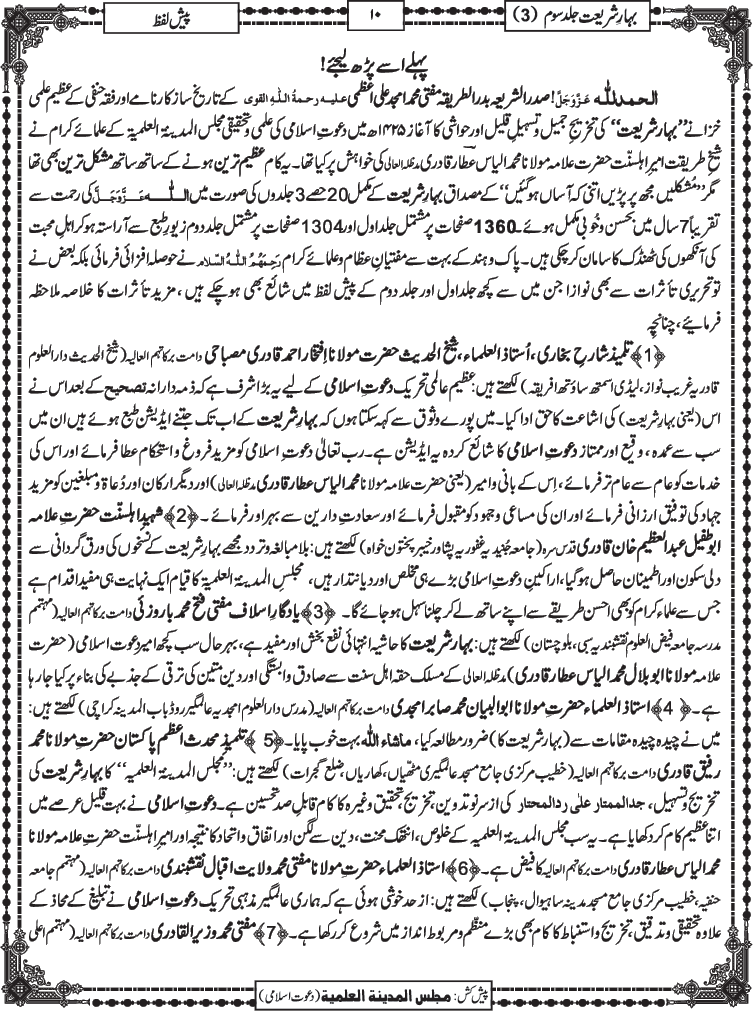 بہارِ شریعت جلد سوم (3)
۱۰
پیش لفظ
پہلے اسے پڑھ لیجئے !
الحمدللہ عَزَّوَجَلَّ! صدر الشریعہ بدر الطریقہ مفتی محمد امجد علی اعظمی علیہ رحمۃُ اللہِ القوی کے تاریخ ساز کارنامے اور فقہ حنفی کے عظیم علمی
خزانے ’’بہارِ شریعت‘‘ کی تخریج جمیل و تسہیلِ قلیل اور حواشی کا آغاز ۱۴۲۵ھ میں دعوتِ اسلامی کی علمی و تحقیقی مجلس المدینۃ العلمیۃ کے علمائے کرام نے
شیخِ طریقت امیرِ اہلسنّت حضرت علامہ مولانا محمد الیاس عطّار قادری مدظلہ العالی کی خواہش پر کیا تھا۔ یہ کام عظیم ترین ہونے کے ساتھ ساتھ مشکل ترین بھی تھا
مگر ’’مُشکلیں مجھ پر پڑیں اتنی کہ آساں ہو گئیں‘‘ کے مصداق بہارِ شریعت کے مکمل 20 حصے 3 جلدوں کی صورت میں اللہ عَزَّوَجَلَّ کی رحمت سے
تقریباً 7 سال میں بحسن و خُوبی مکمل ہوئے۔ 1360 صفحات پر مشتمل جلد اول اور 1304 صفحات پر مشتمل جلد دوم زیورِ طبع سے آراستہ ہو کر اہلِ محبت
کی آنکھوں کی ٹھنڈک کا سامان کر چکی ہیں۔ پاک و ہند کے بہت سے مفتیانِ عظام و علمائے کرام رَحِمَہُمُ اللّٰہُ السَّلام نے حوصلہ افزائی فرمائی بلکہ بعض نے
تو تحریری تأثرات سے بھی نوازا جن میں سے کچھ جلد اول اور جلد دوم کے پیش لفظ میں شائع بھی ہو چکے ہیں ، مزید تأثرات کا خلاصہ ملاحظہ
فرمائیے ، چنانچہ
﴿1﴾ تلمیذ شارحِ بخاری ، اُستاذ العلماء ، شیخ الحدیث حضرت مولانا اِفتخار احمد قادری مصباحی دامت برکاتہم العالیہ (شیخ الحدیث دار العلوم
قادریہ غریب نواز، لیڈی اسمتھ ساؤتھ افریقہ) لکھتے ہیں : عظیم عالمی تحریک دعوتِ اسلامی کے لیے یہ بڑا شرف ہے کہ ذمہ دارانہ تصحیح کے بعد اس نے
اس (یعنی بہارِ شریعت) کی اشاعت کا حق ادا کیا۔ میں پورے وثوق سے کہہ سکتا ہوں کہ بہارِ شریعت کے اب تک جتنے ایڈیشن طبع ہوئے ہیں ان میں
سب سے عمدہ ، وقیع اور ممتاز دعوتِ اسلامی کا شائع کردہ یہ ایڈیشن ہے۔ رب تعالیٰ دعوتِ اسلامی کو مزید فروغ و استحکام عطا فرمائے اور اس کی
خدمات کو عام سے عام تر فرمائے ، اِس کے بانی و امیر (یعنی حضرت علامہ مولانا محمد الیاس عطّار قادری مدظلہ العالی) اور دیگر ارکان اور دُعاۃ و مبلغین کو مزید
جہاد کی توفیق ارزانی فرمائے اور ان کی مساعی و جہود کو مقبول فرمائے اور سعادتِ دارین سے بہرا ور فرمائے۔ ﴿2﴾ شہیدِ اہلسنّت حضرت علامہ
ابو طفیل عبد العظیم خان قادری قدس سرہ (جامعہ جُنیدیہ غفوریہ پشاور خیبر پختون خواہ) لکھتے ہیں : بلا مبالغہ و تردد مجھے بہارِ شریعت کے نسخوں کی ورق گردانی سے
دلی سکون اور اطمینان حاصل ہو گیا ، اراکینِ دعوتِ اسلامی بڑے ہی مخلص اور دیانتدار ہیں ، مجلس المدینۃ العلمیۃ کا قیام ایک نہایت ہی مفید اقدام ہے
جس سے علماء کرام کو بھی احسن طریقے سے اپنے ساتھ لے کر چلنا سہل ہو جائے گا۔ ﴿3﴾ یادگارِ اسلاف مفتی فتح محمد باروزئی دامت برکاتہم العالیہ (مہتمم
مدرسہ جامعہ فیض العلوم نقشبندیہ سبی، بلوچستان) لکھتے ہیں : بہارِ شریعت کا حاشیہ انتہائی نفع بخش اور مفید ہے ، بہر حال سب کچھ امیرِ دعوتِ اسلامی (حضرت
علامہ مولانا ابو بلال محمد الیاس عطّار قادری) مدظلہ العالی کے مسلک حقہ اہل سنت سے صادق وابستگی اور دین متین کی ترقی کے جذبے کی بناء پر کیا جا رہا
ہے۔ ﴿4﴾ استاذ العلماء حضرت مولانا ابو البیان محمد صابر امجدی دامت برکاتہم العالیہ (مدرس دار العلوم امجدیہ عالمگیر روڈ باب المدینہ کراچی) لکھتے ہیں :
میں نے چیدہ چیدہ مقامات سے (بہارِ شریعت کا) ضرور مطالعہ کیا ، ماشاء اللہ بہت خوب پایا۔ ﴿5﴾ تلمیذ محدث اعظم پاکستان حضرت مولانا محمد
رفیق قادری دامت برکاتہم العالیہ (خطیب مرکزی جامع مسجد عالمگیری مٹھیاں، کھاریاں، ضلع گجرات) لکھتے ہیں : ’’مجلس المدینۃ العلمیۃ‘‘ کا بہارِ شریعت کی
تخریج و تسہیل ، جد الممتار علی رد المحتار کی از سرِ نو تدوین، تخریج ، تحقیق وغیرہ کا کام قابلِ صد تحسین ہے۔ دعوتِ اسلامی نے بہت قلیل عرصے میں
اتنا عظیم کام کر دکھایا ہے۔ یہ سب مجلس المدینۃ العلمیۃ کے خلوص ، انتھک محنت ، دین سے لگن اور اتفاق و اتحاد کا نتیجہ اور امیرِ اہلسنّت حضرت علامہ مولانا
محمد الیاس عطّار قادری دامت برکاتہم العالیہ کا فیض ہے۔ ﴿6﴾ استاذ العلماء حضرت مولانا مفتی محمد ولایت اقبال نقشبندی دامت برکاتہم العالیہ (مہتمم جامعہ
حنفیہ، خطیب مرکزی جامع مسجد مدینہ ساہیوال، پنجاب) لکھتے ہیں : از حد خوشی ہوئی ہے کہ ہماری عالمگیر مذہبی تحریک دعوتِ اسلامی نے تبلیغ کے محاذ کے
علاوہ تحقیقی و تدقیق ، تخریج و استنباط کا کام بھی بڑے منظّم و مربوط انداز میں شروع کر رکھا ہے۔ ﴿7﴾ مفتی محمد وزیر القادری دامت برکاتہم العالیہ (مہتمم اعلی
پیش کش : مجلس المدینۃ العلمیۃ (دعوتِ اسلامی)